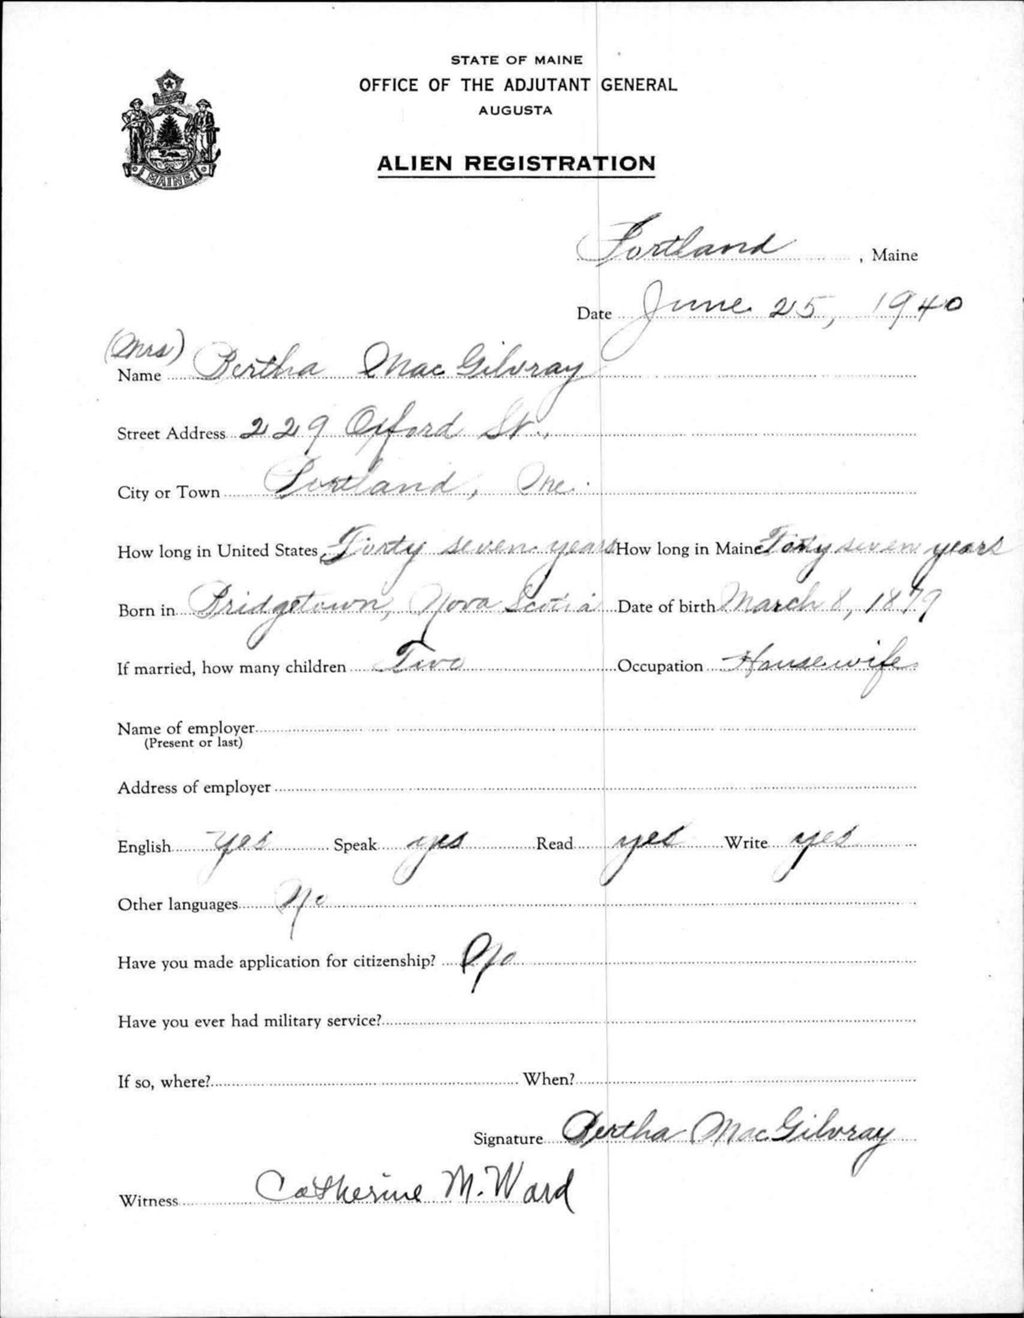 STATE OF MAINE
OFFICE OF THE ADJUTANT GENERAL
AUGUSTA
MAINE
ALIEN REGISTRATION
Portland, Maine
Date June 25, 1940
(Mrs)
Name Bertha MacGilvray
Street Address 229 Oxford St.,
City or Town Portland, Me.
How long in United States Forty seven years How long in Maine Forty seven years
Born in Bridgetown, Nova Scotia Date of birth March 8, 1879
If married, how many children Two Occupation Housewife
Name of employer
(Present or last)
Address of employer
English yes Speak yes Read yes Write yes
Other languages No
Have you made application for citizenship? No
Have you ever had military service?
If so, where? When?
Signature Bertha MacGilvray
Witness Catherine M. Ward